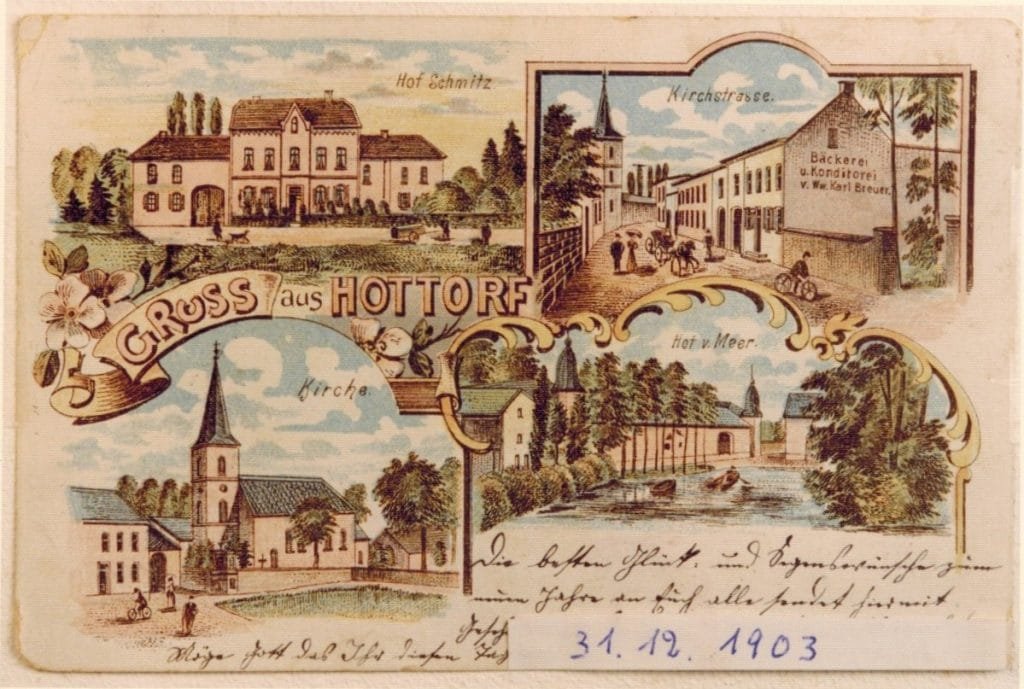 Hof Schmitz
Kirchstrasse.
Bäckerei
u. Konditorei
v. Ww. Karl Breuer.
GRUSS aus HOTTORF
Hof v. Meer.
Kirche.
Die besten Glück- und Segenswünsche zum
neuen Jahre an Euch alle sendet hiermit
Gesch
Möge Gott das Ihr diesen Tag
31. 12. 1903